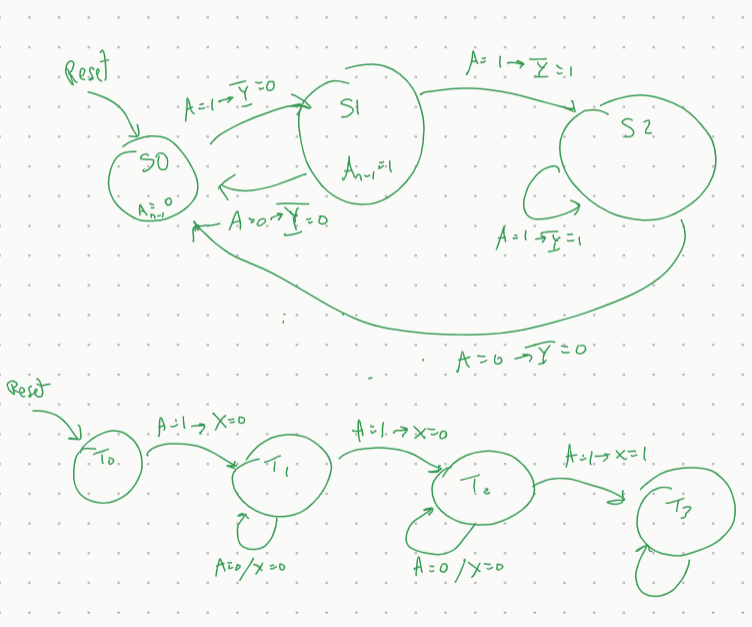 Reset
A=1→Y=0
S0
A n-1=0
S1
A n-1=1
A=1→Y=1
S2
A=1→Y=1
A=0→Y=0
A=0→Y=0
Reset
T0
A=1→X=0
T1
A=0/X=0
A=1→X=0
T2
A=0/X=0
A=1→X=1
T3